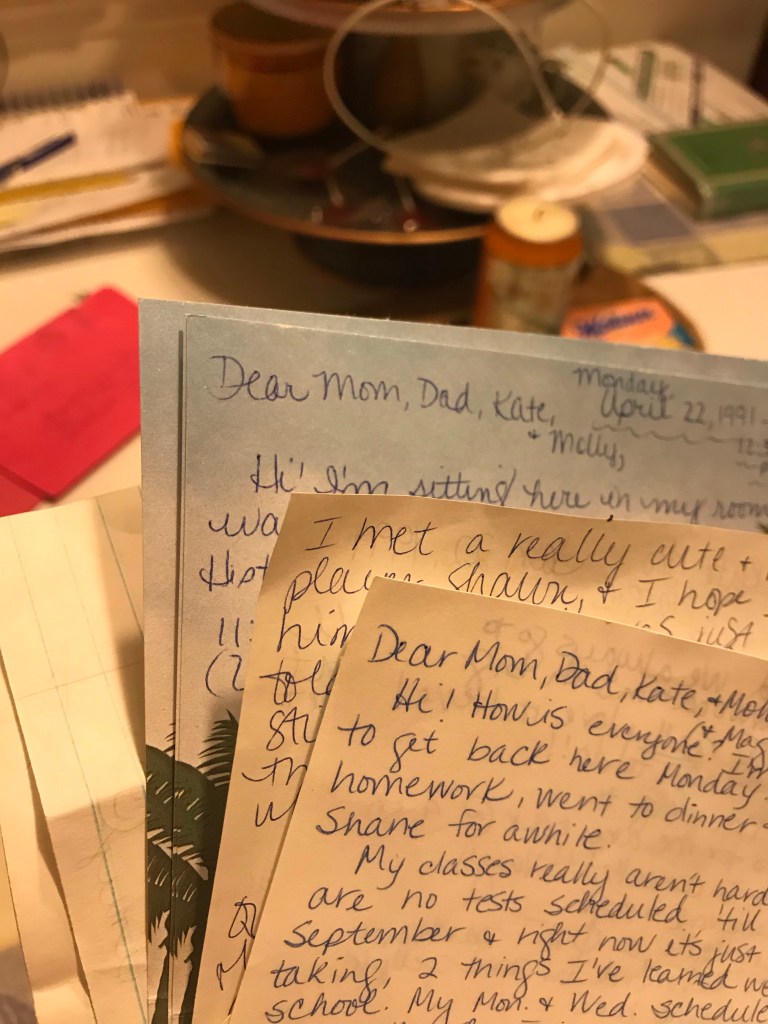 Dear Mom, Dad, Kate,
Monday
April 22, 1991
& Molly,
Hi! I'm sitting here in my room
wa
Hist
11:
(2
I met a really cute +
player, Shawn, & I hope
him just
told
sti
th
w
Dear Mom, Dad, Kate, & Mol
(& Mag
Hi! How is everyone? I'm
to get back here Monday
homework, went to dinner
Shane for awhile.
My classes really aren't hard
are no tests scheduled 'till
September & right now it's just
taking, 2 things I've learned we
school. My Mon. & Wed. schedule